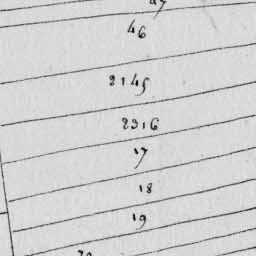 46
2145
2316
17
18
19